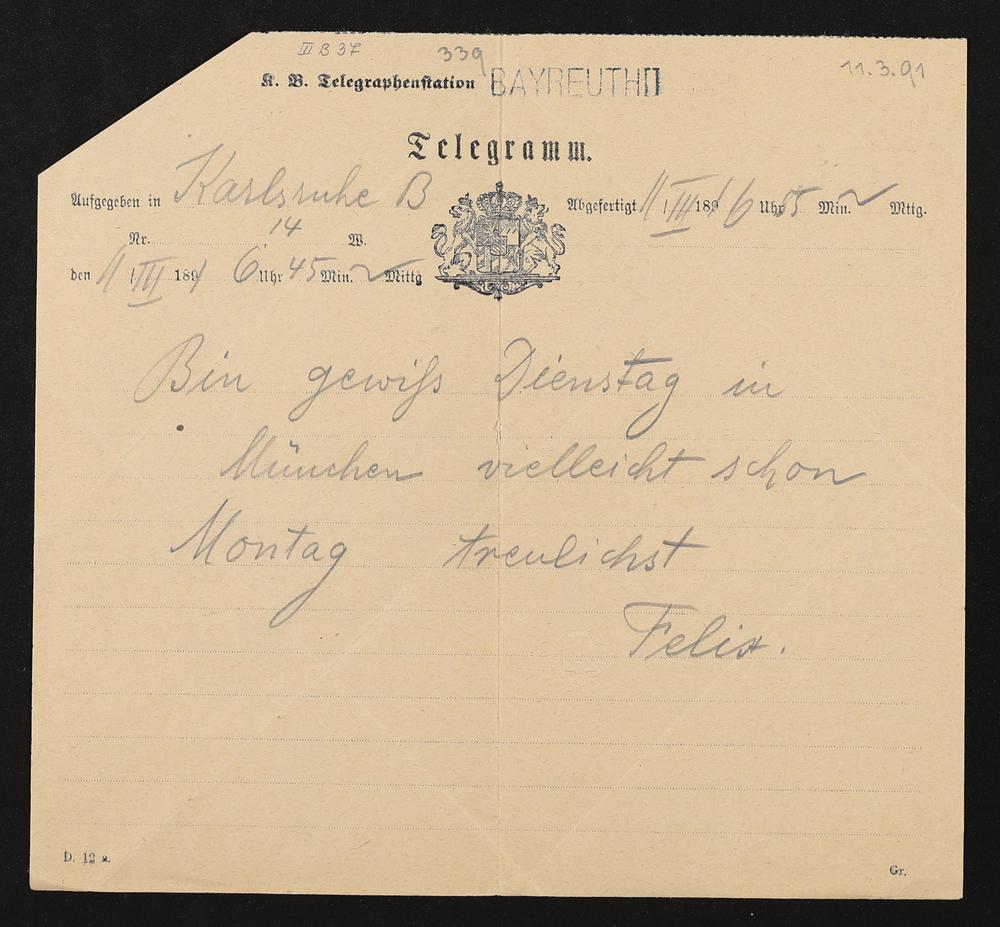 III B 37
339
11.3.91
K. B. Telegraphenstation BAYREUTH II
Telegramm.
Aufgegeben in Karlsruhe B
Abgefertigt 11/III 1891 6 Uhr 55 Min. Mttg.
Nr. 14 W.
den 11/III 1891 6 Uhr 45 Min. Mittg
Bin gewiß Dienstag in
München vielleicht schon
Montag treulichst
Felix.
D. 12 a.
Gr.